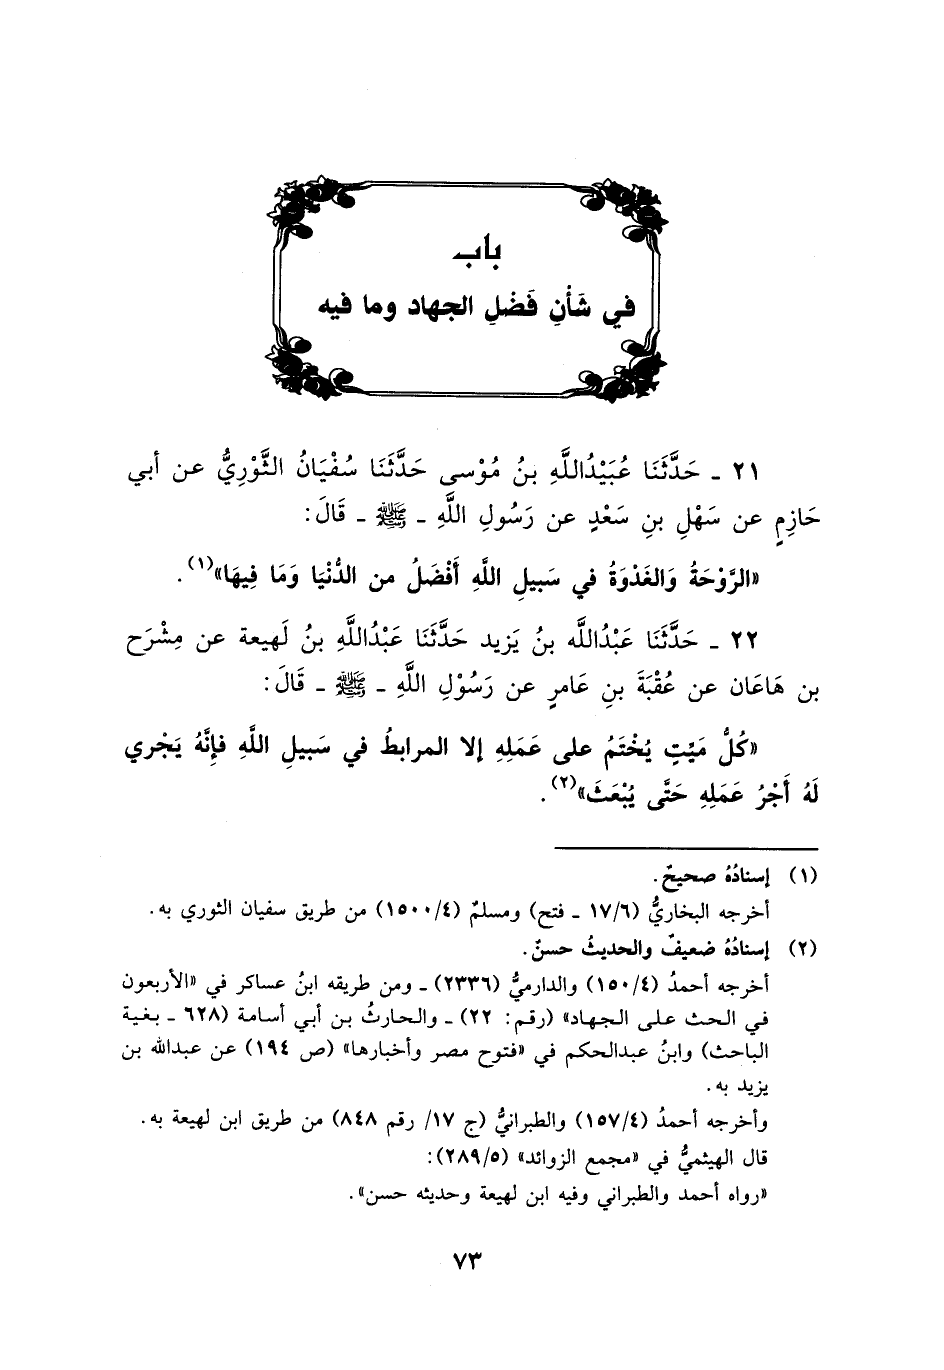 باب
في شَأْنِ فَضْلِ الجهاد وما فيه
٢١ ـ حَدَّثَنَا عُبَيْدُاللَّهِ بنُ مُوْسى حَدَّثَنَا سُفْيَانُ الثَّوْرِيُّ عن أبي
حَازِمٍ عن سَهْلِ بنِ سَعْدٍ عن رَسُولِ اللَّهِ ـ ﷺ ـ قَالَ:
«الرَّوْحَةُ وَالغَدْوَةُ في سَبيلِ اللَّهِ أَفْضَلُ من الدُّنْيَا وَمَا فِيهَا»(١).
٢٢ ـ حَدَّثَنَا عَبْدُاللَّه بنُ يَزيد حَدَّثَنَا عَبْدُاللَّهِ بنُ لَهيعة عن مِشْرَح
بن هَاعَان عن عُقْبَةَ بنِ عَامرٍ عن رَسُوْلِ اللَّهِ ـ ﷺ ـ قَالَ:
«كُلُّ مَيْتٍ يُخْتَمُ على عَمَلِهِ إلا المرابطُ في سَبيلِ اللَّهِ فإنَّهُ يَجْري
لَهُ أَجْرُ عَمَلِهِ حَتَّى يُبْعَثَ»(٢).
(١) إسنادُهُ صحيحٌ.
أخرجه البخاريُّ (١٧/٦ ـ فتح) ومسلمٌ (١٥٠٠/٤) من طريق سفيان الثوري به.
(٢) إسنادُهُ ضعيفٌ والحديثُ حسنٌ.
أخرجه أحمدُ (١٥٠/٤) والدارميُّ (٢٣٣٦) ـ ومن طريقه ابنُ عساكر في «الأربعون
في الحث على الجهاد» (رقم: ٢٢) ـ والحارثُ بن أبي أسامة (٦٢٨ ـ بغية
الباحث) وابنُ عبدالحكم في «فتوح مصر وأخبارها» (ص ١٩٤) عن عبدالله بن
يزيد به.
وأخرجه أحمدُ (١٥٧/٤) والطبرانيُّ (ج ١٧/ رقم ٨٤٨) من طريق ابن لهيعة به.
قال الهيثميُّ في «مجمع الزوائد» (٢٨٩/٥):
«رواه أحمد والطبراني وفيه ابن لهيعة وحديثه حسن».
٧٣